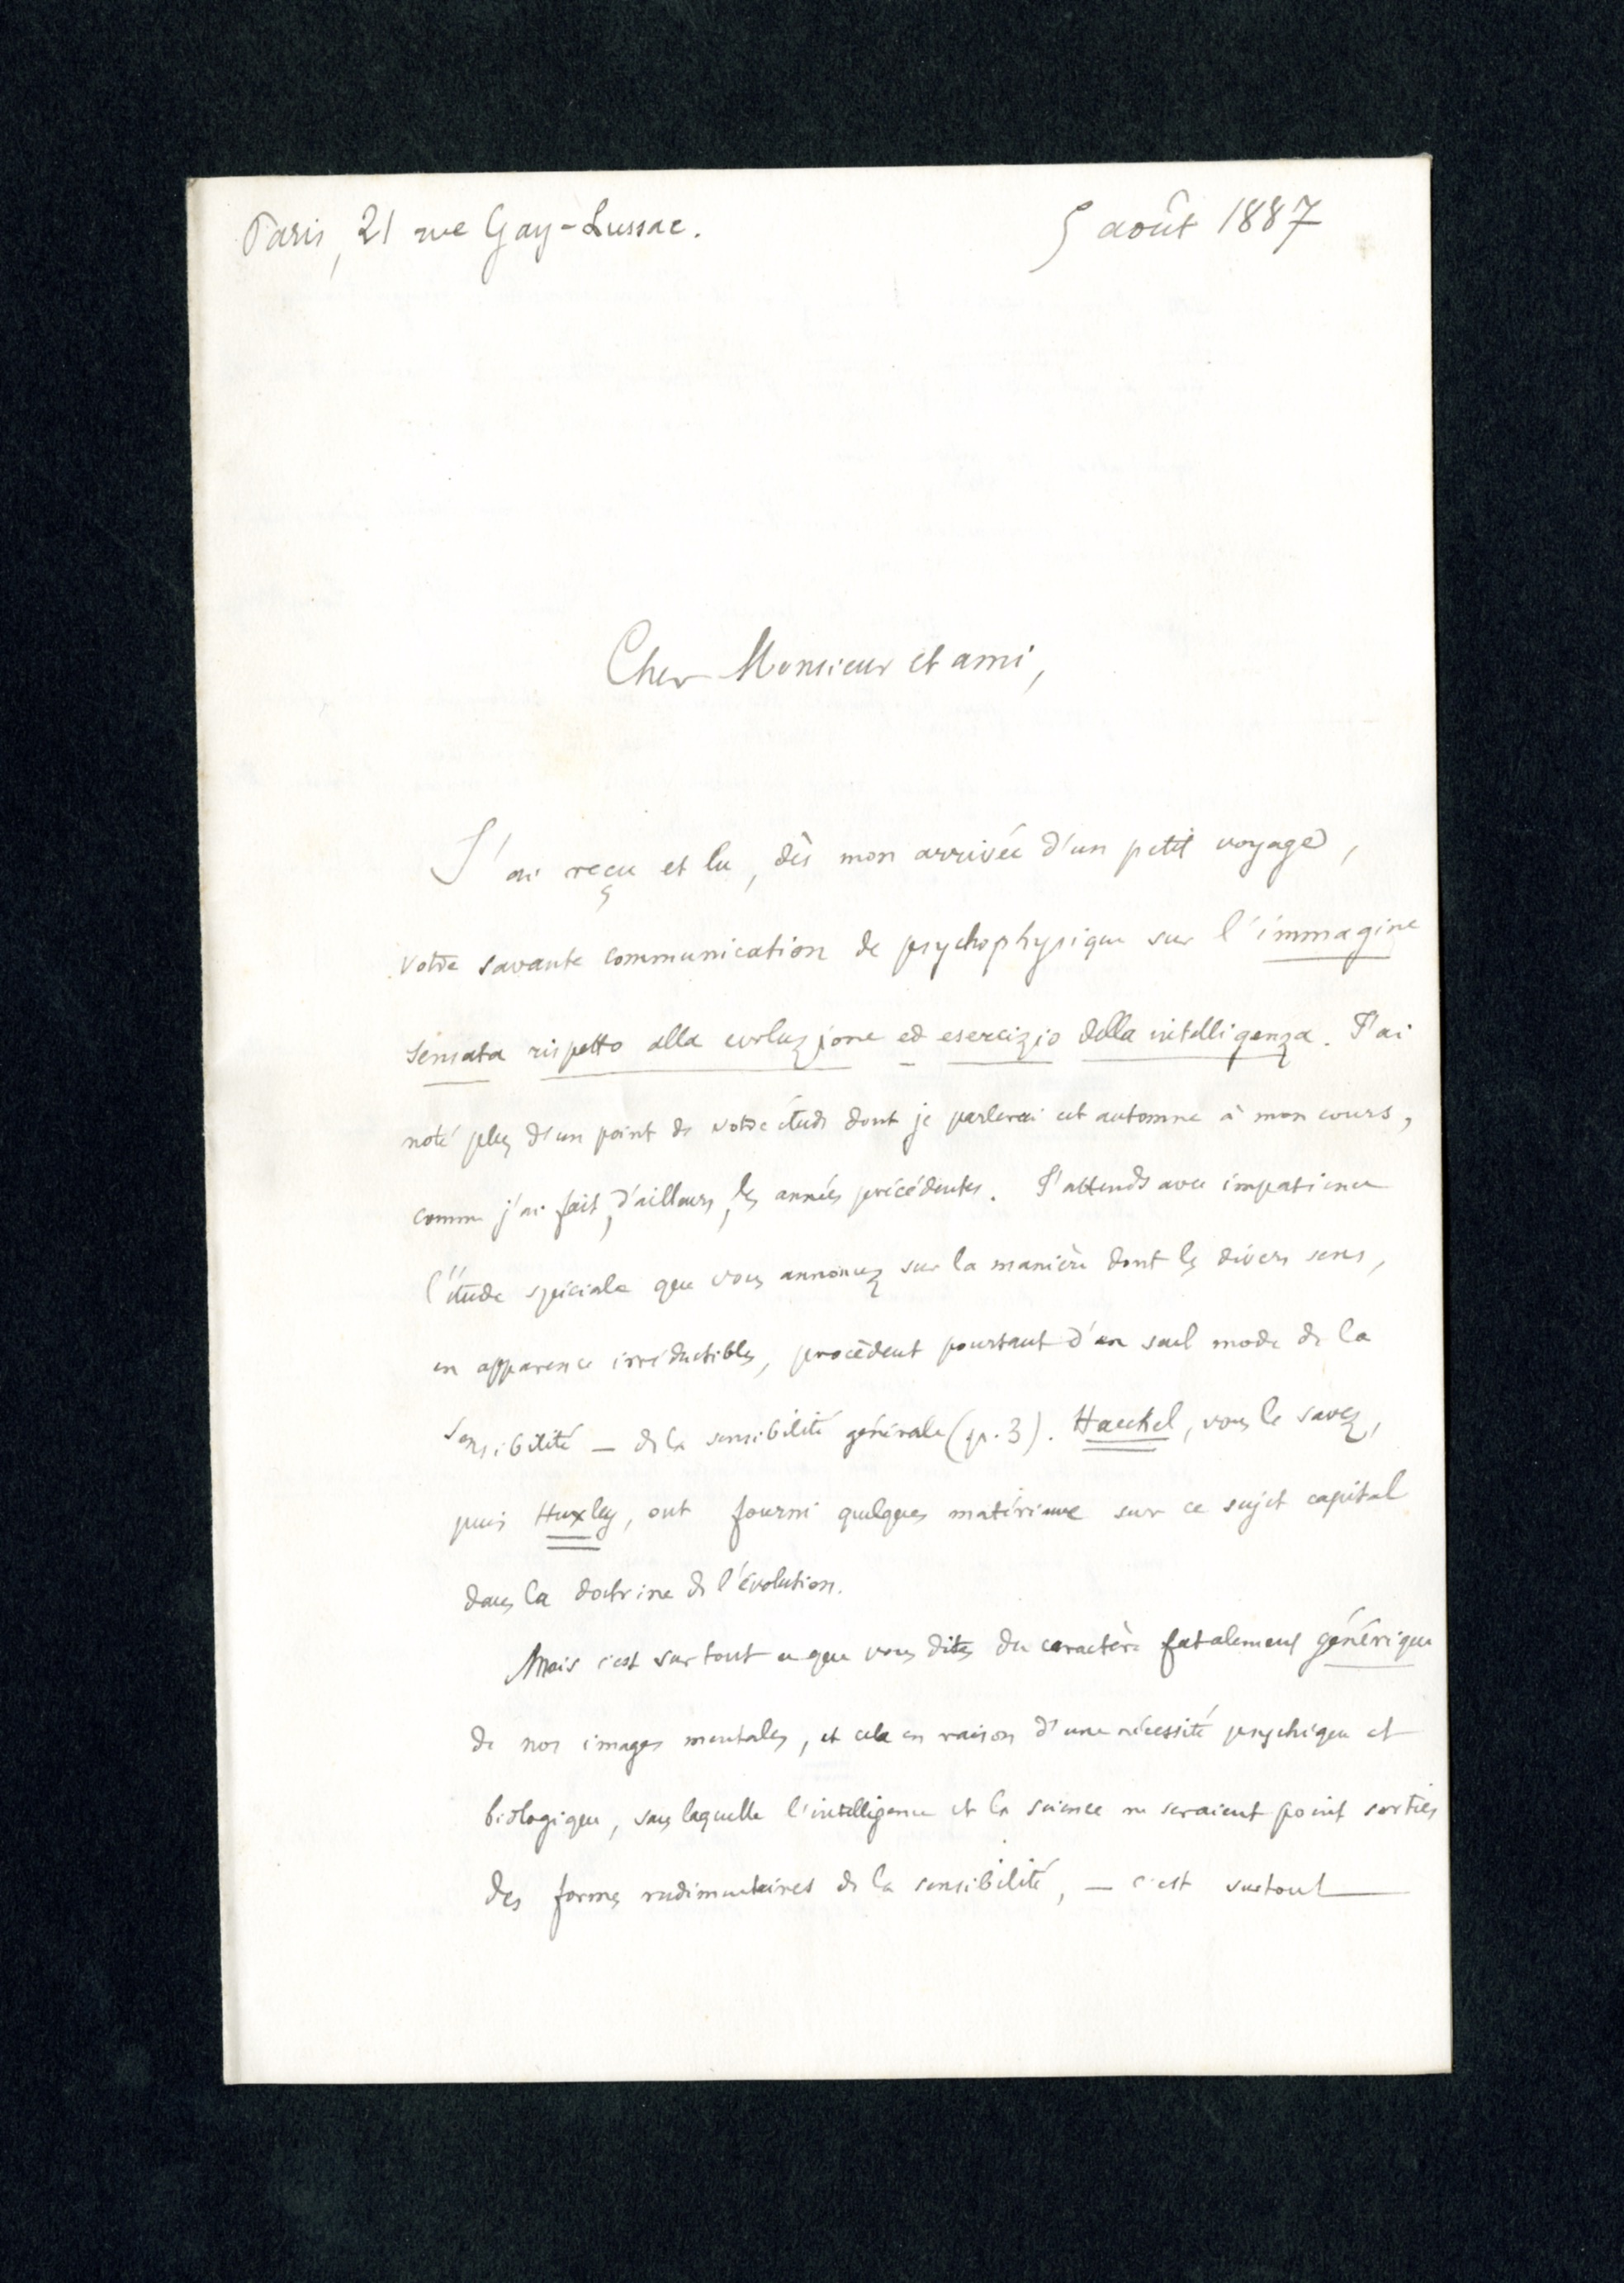 Paris, 21 rue Gay-Lussac.
5 août 1887
Cher Monsieur et ami,
J'ai reçu et lu, dès mon arrivée d'un petit voyage,
votre savante communication de psychophysique sur l'immagine
sensata rispetto alla evoluzione ed esercizio della intelligenza. J'ai
noté plus d'un point de votre étude dont je parlerai cet automne à mon cours,
comme j'ai fait, d'ailleurs, les années précédentes. J'attends avec impatience
l'étude spéciale que vous annoncez sur la manière dont les divers sens,
en apparence irréductibles, procèdent pourtant d'un seul mode de la
sensibilité — de la sensibilité générale (p. 3). Haeckel, vous le savez,
puis Huxley, ont fourni quelques matériaux sur ce sujet capital
dans la doctrine de l'évolution.
Mais c'est surtout ce que vous dites du caractère fatalement générique
de nos images mentales, et cela en raison d'une nécessité psychique et
biologique, sans laquelle l'intelligence et la science ne seraient point sorties
des formes rudimentaires de la sensibilité, — c'est surtout